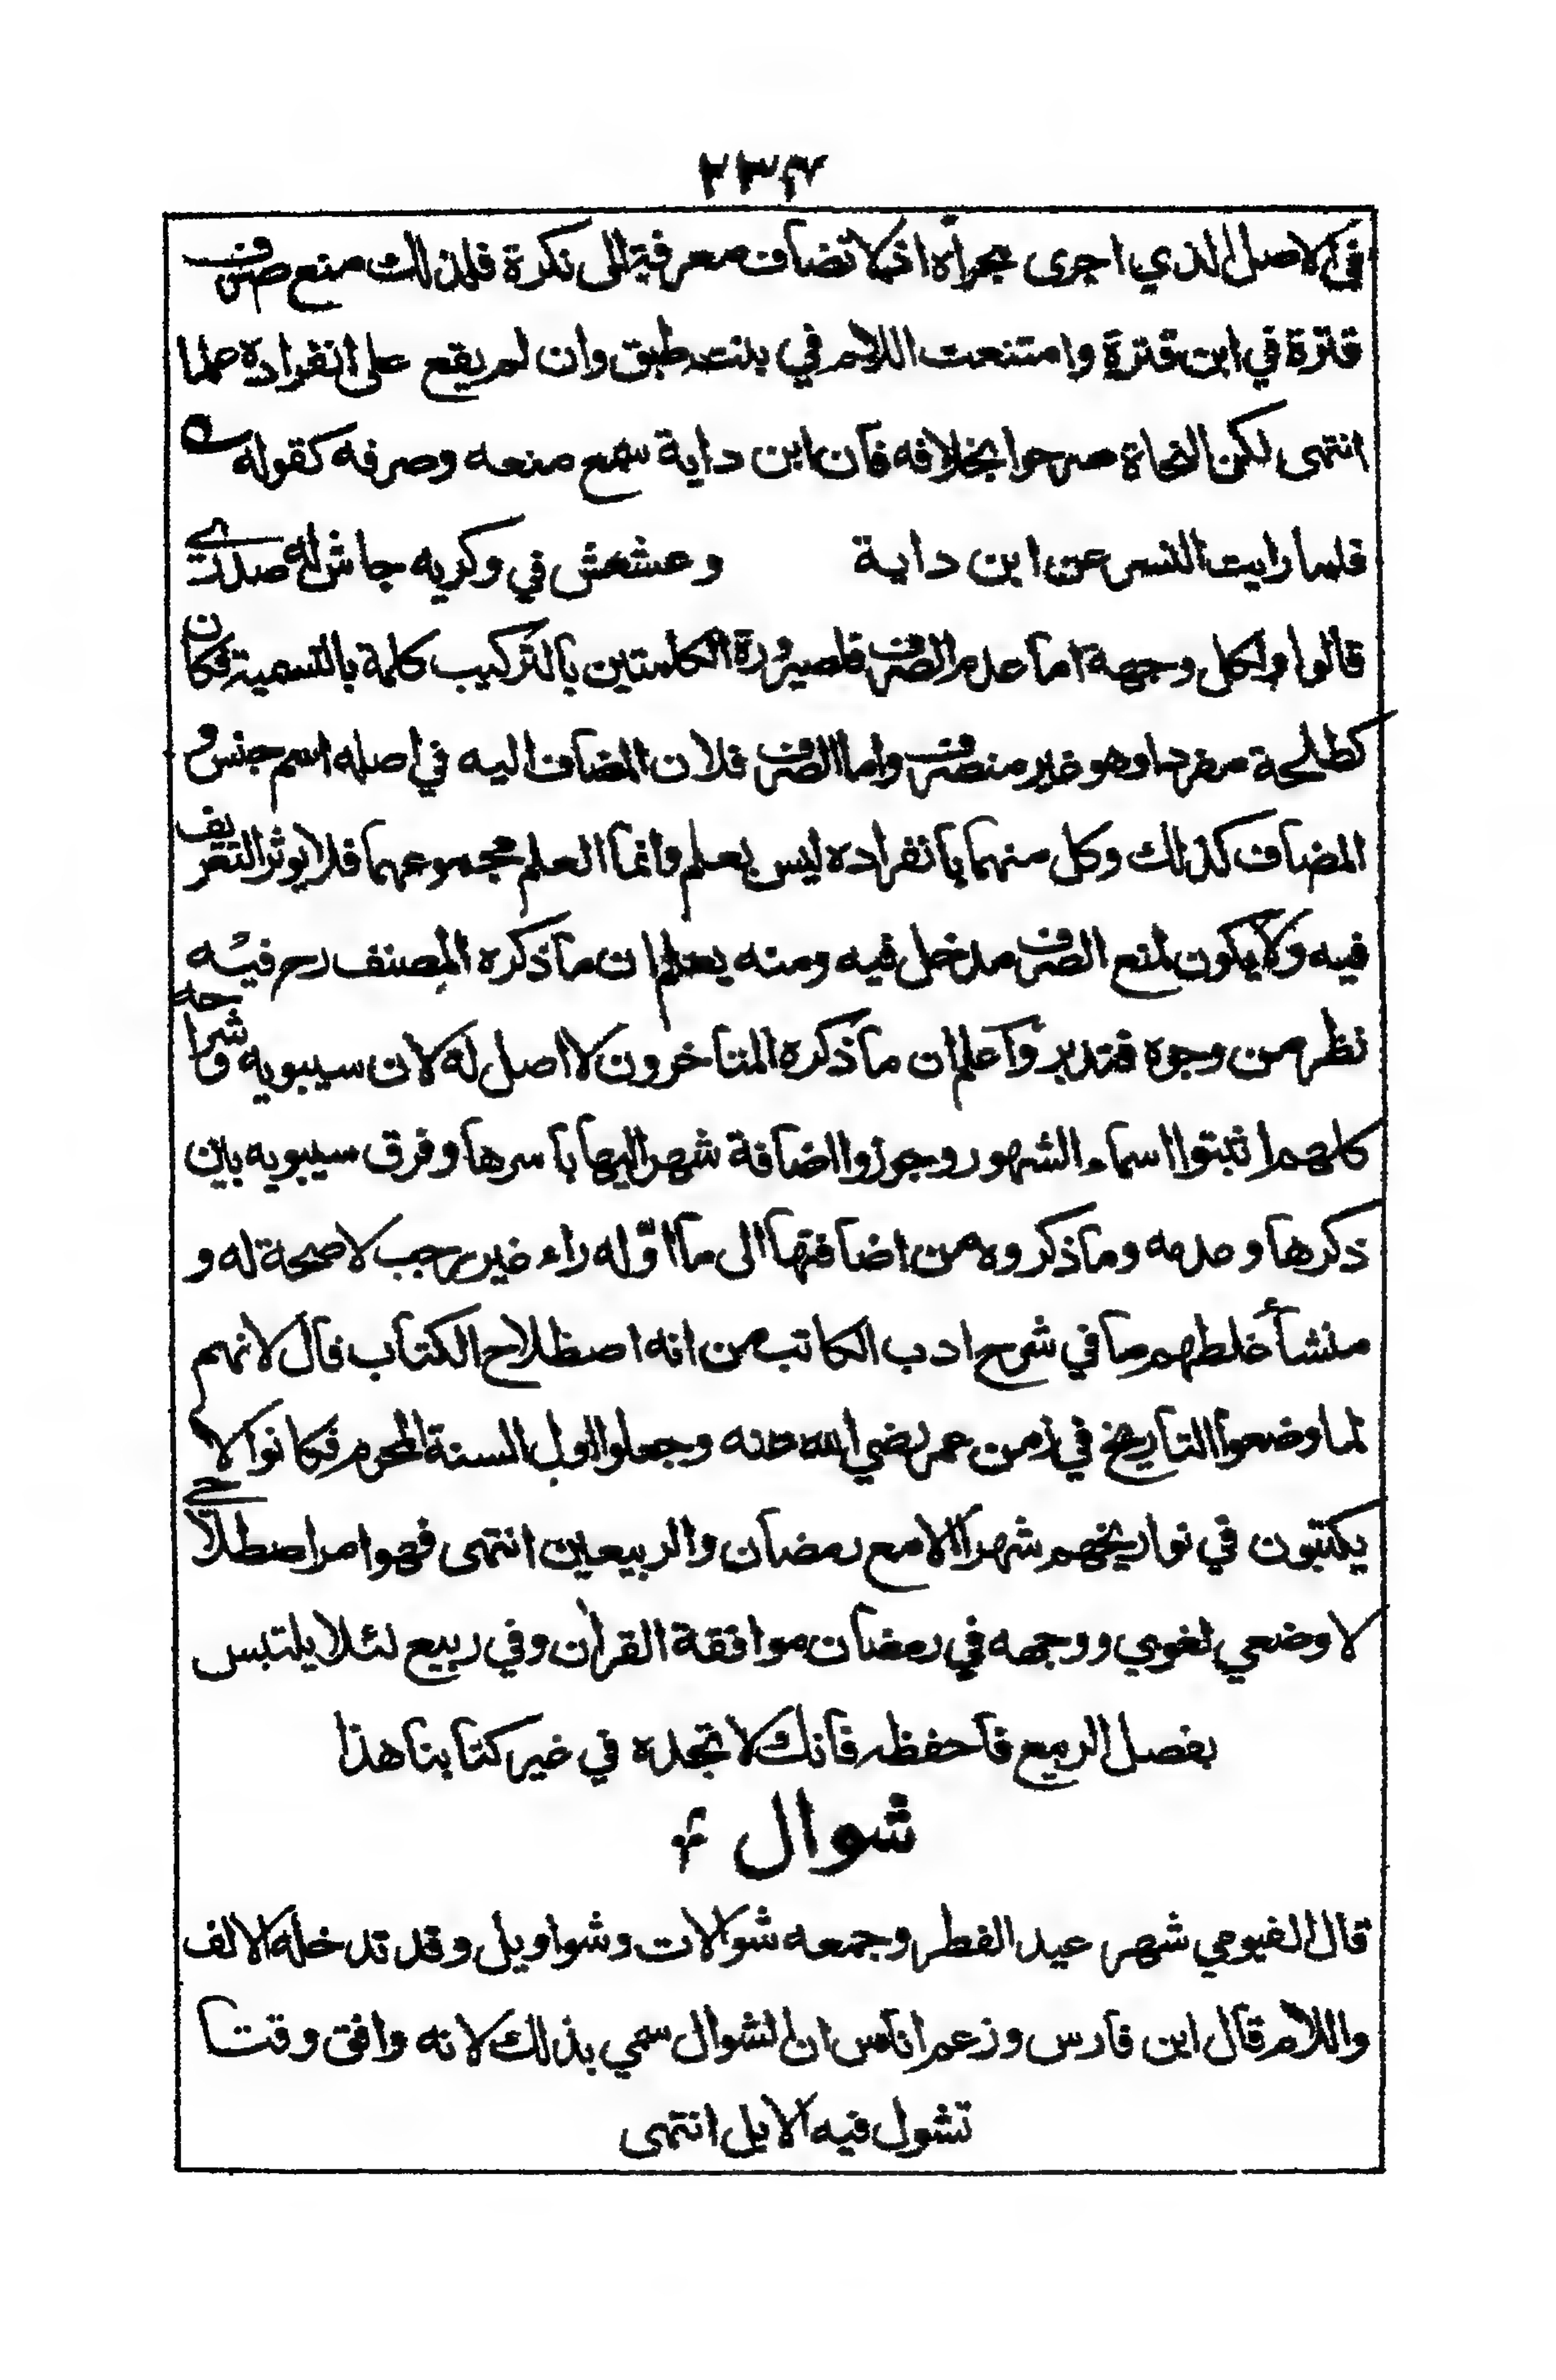 ٢٣٤
في الاصل الذي اجرى مجراه اذ لا تضاف معرفة الى نكرة فلذلك منع صرف
قترة في ابن قترة وامتنعت اللام في بنت طبق وان لم يقع على انفراده علما
انتهى لكن النحاة صرحوا بخلافه فان ابن داية سمع منعه وصرفه كقوله
فلما رايت النسر عن ابن داية وعشعش في وكريه جاش له صدري
قالوا ولكل وجهة اما عدم الصرف فلصيرورة الكلمتين بالتركيب كلمة بالتسمية فكان
كطلحة مفردا وهو غير منصرف واما الصرف فلان المضاف اليه في اصله اسم جنس و
المضاف كذلك وكل منهما بانفراده ليس بعلم وانما العلم مجموعهما فلا يوثر التعريف
فيه ولا يكون لمنع الصرف مدخل فيه ومنه يعلم ان ما ذكره المصنف رح فيه
نظر من وجوه فتدبر واعلم ان ما ذكره المتاخرون لا اصل له لان سيبويه وشراحه
كلهم اثبتوا اسماء الشهور وجوزوا اضافة شهر اليها باسرها وفرق سيبويه بين
ذكرها وعدمه وما ذكروه من اضافتها الى ما اوّله راء غير رجب لا صحة له و
منشأ غلطهم ما في شرح ادب الكاتب من انه اصطلاح الكتاب قال لانهم
لما وضعوا التاريخ في زمن عمر رضي الله عنه وجعلوا اول السنة المحرم فكانوا لا
يكتبون في تواريخهم شهرا الا مع رمضان والربيعين انتهى فهو امر اصطلاحي
لا وضعي لغوي ووجهه في رمضان موافقة القرأن وفي ربيع لئلا يلتبس
بفصل الربيع فاحفظه فانك لا تجده في غير كتابنا هذا
شوال
قال الفيومي شهر عيد الفطر وجمعه شوالات وشواويل وقد تدخله الالف
واللام قال ابن فارس وزعم اناس ان الشوال سمي بذلك لانه وافق وقتا
تشول فيه الابل انتهى